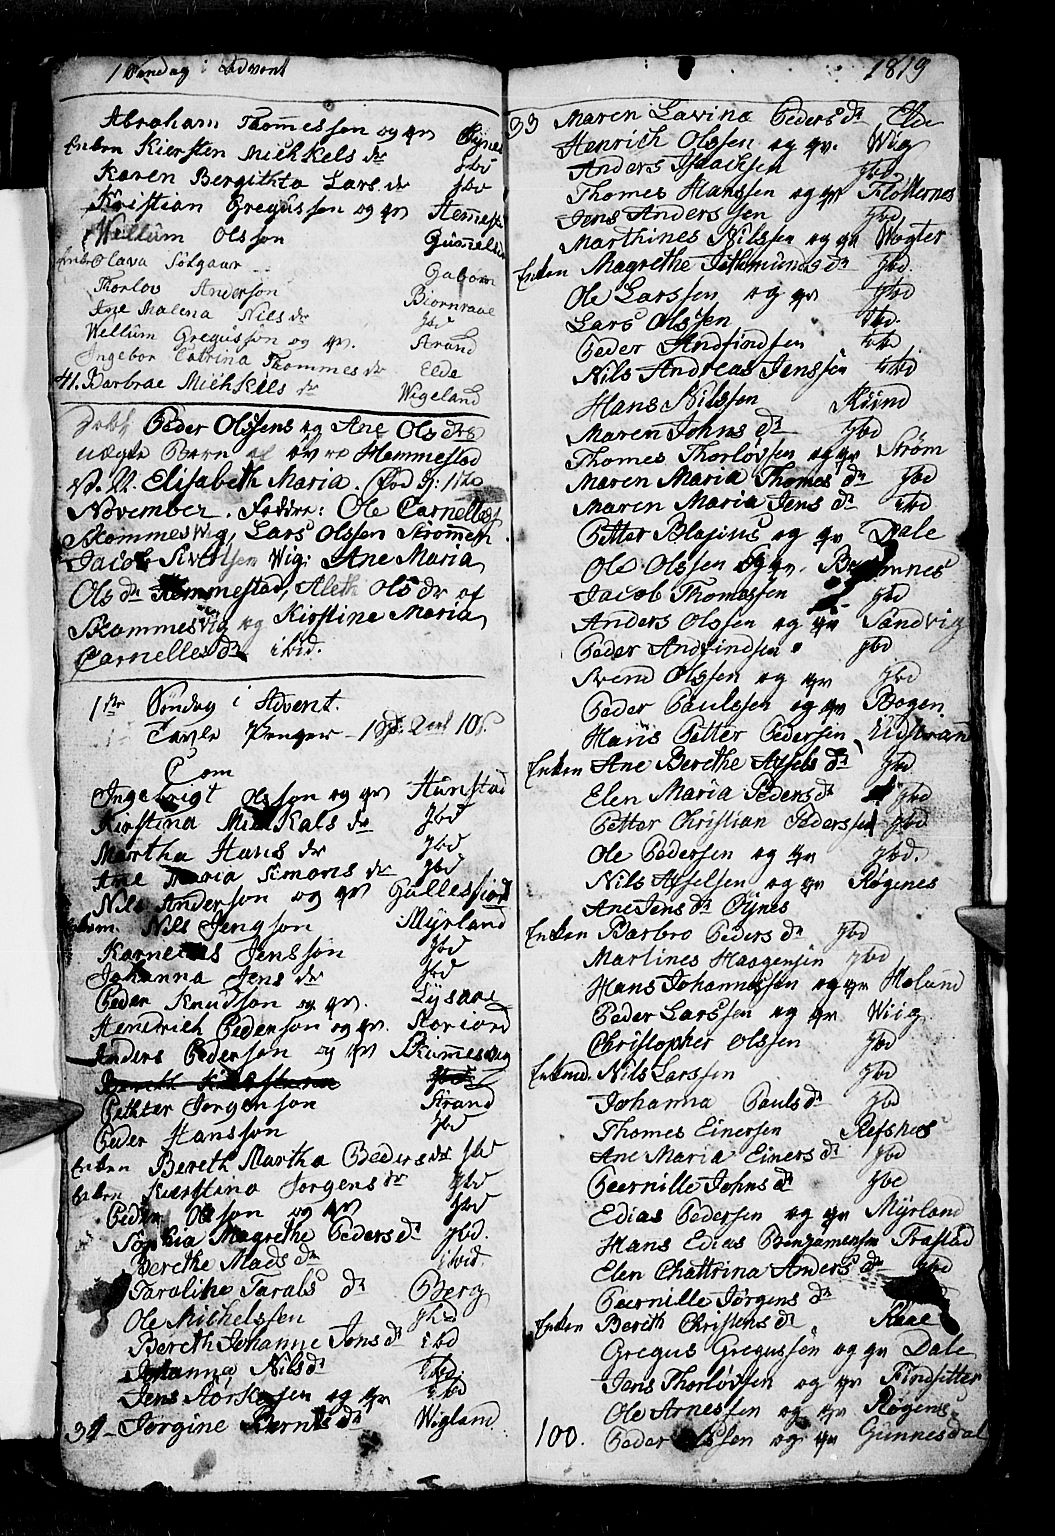 1 Søndag i Advent
Abraham Thommesson og qv Øjnes
Enken Kiersten Michkels dr jbd
Karen Bergithta Lars dr jbd
Kristian Gregusson og qv Hemmest
Wellum Olsson Gunnelsd
Olava Solgaar Gaboen
Thorlov Anderson Biornraae
Ane Malena Nils dr jbd
Wellum Gregusson og qv. Strand
Ingebor Catrina Thommes dr Elde
41. Barbrae Michkels dr Wigeland
Døbt Peder Olssens og Ane Ols drs
uægte Barn af øvre Hemmestad
N. N. Elisabeth Maria. Fød d: 11te
November. Faddere: Ole Carnelles
Skommeswig, Lars Olssen Strømmen
Jacob Sivertsen Wig: Ane Maria
Ols dr Hemmestad, Aleth Ols dr af
Skommeswig og Kirstine Maria
Carnelles dr ibid.
1ste Søndag i Advent.
Tavle Penger
Com
Ingebrigt Olsson og qv Hunstad
Kirstina Michkals dr jbd
Martha Hans dr jbd
Ane Maria Simons dr jbd
Nils Anderson og qv Gallesfiord
Nils Jengson Myrland
Karnelius Jensson jbd
Johanna Jens dr jbd
Peder Knudson og qv. Lysaae
Hendrich Pederson og qv. Koriord
Anders Pederson og qv Skummeswig
Pehter Jorgenson Strand
Peder Hansson jbd
Enken Bereth Martha Peders dr jbd
Enken Kierstina Jorgens dr jbd
Peder Olsson og qv jbd
Sophia Magrethe Peders dr jbd.
Berethe Mads dr ibid.
Taralina Tarals dr Berg
Ole Michelssen jbd
Bereth Johanne Jens dr ibd
Johanna Nils dr ibd.
Jens Torkessen og qv ibd
34 Jørgine Bernts dr Wigland
1819
33 Maren Lavina Peders dr Elde
Henrich Olssen og qv. Wig
Anders Isaachsen jbd
Thomes Hanssen og qv Flottenes
Jens Anderssen jbd
Marthines Nilssen og qv Wogter
Enken MagretheIthmunds dr jbd.
Ole Larssen og qv jbd
Lars Olssen ibd.
Peder Andfindsen ibd
Nils Andreas Jenssen ibd
Hans Nilssen Kuind
Maren Johns dr jbd
Thomes Thorlovsen og qv Strøm
Maren Maria Thomes dr jbd
Maren Maria Jens dr ibd
Petter Blasius og qv Dale
Ole Olssen og qv.
Jacob Thomassen jbd
Anders Olssen og qv Sandvig
Peder Andvindsen jbd
Svend Olssen og qv jbd
Peder Paulssen og qv Bogen
Hans Petter Pedersen
Enken Ane Berethe Axsels dr jbd
Elen Maria Peders dr jbd
Petter Christian Pederssen jbd
Ole Pedersen og qv jbd.
Nils Axselsen og qv Røgenes
Ane Jens dr Øjnes
Enken Barbro Peders dr jbd
Martines Haagensen jbd
Hans Johannessen og qv Holund
Peder Larssen og qv Wiig
Christopher Olssen jbd
Enkmd. Nils Larssen jbd
Johanna Pauls dr jbd
Thomes Einersen Refsnes
Ane Maria Einers dr jbd
Peernille Johns dr jbd
Edias Pedersen og qv Myrland
Hans Edias Benjamensen Trastad
Elen Chattrina Anders dr jbd
Peernille Jørgens dr
Enken Bereth Christens dr
Gregus Gregussen og qv Dale
Jens Thorlovsen og qv Findsetter
Ole Arnessen og qv Røgenes
100. Peder Olssen og qv Gunnesdal